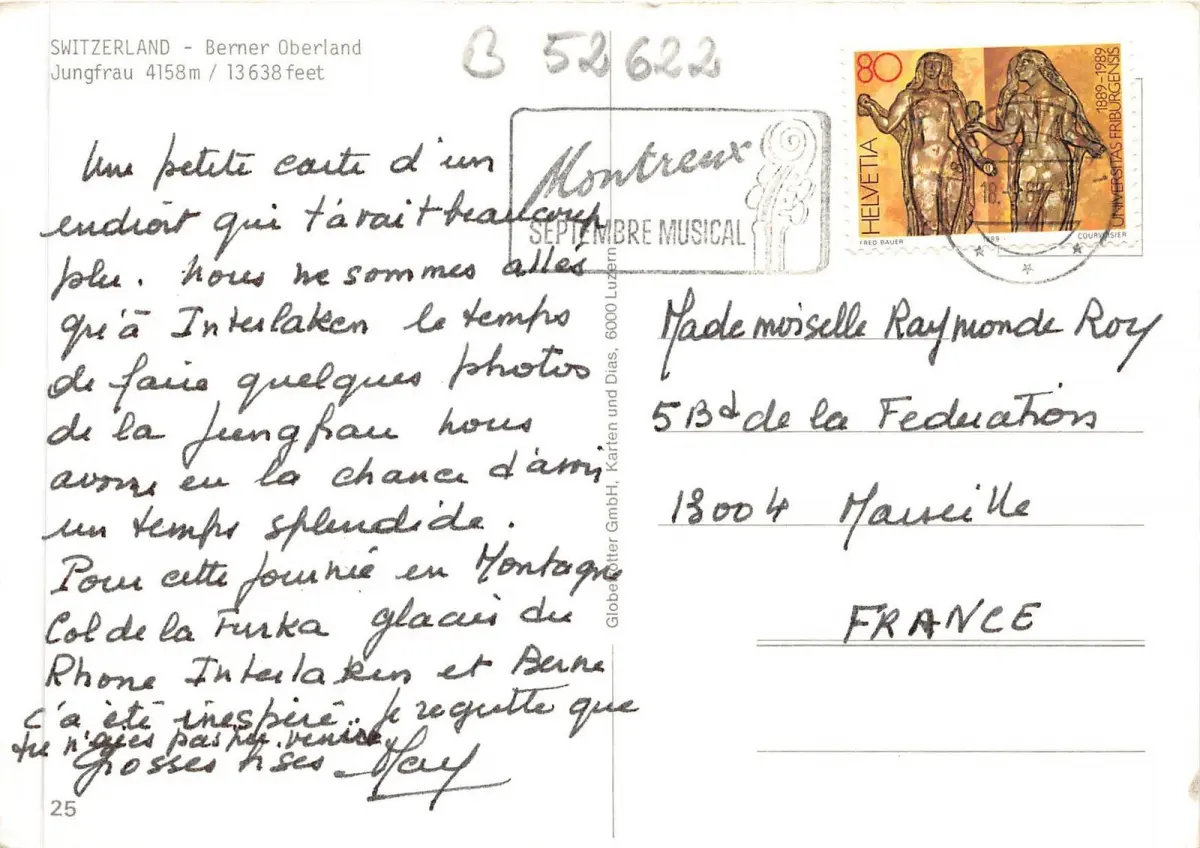 SWITZERLAND - Berner Oberland
Jungfrau 4158 m / 13638 feet
B 52622
Une petite carte d'un
endroit qui t'avait beaucoup
plu. Nous ne sommes allés
qu'à Interlaken le temps
de faire quelques photos
de la Jungfrau nous
avons eu la chance d'avoir
un temps splendide.
Pour cette journée en Montagne
Col de la Furka glacier du
Rhone Interlaken et Berne
c'a été inespéré.. Je regrette que
tu n'aies pas pu venir.
Grosses bises May
25
Globetrotter GmbH, Karten und Dias, 6000 Luzern
Montreux
SEPTEMBRE MUSICAL
80
HELVETIA
1889-1989
UNIVERSITAS FRIBURGENSIS
FRED BAUER
1989
COURVOISIER
Mademoiselle Raymonde Roy
5 Bd de la Federation
13004 Marseille
FRANCE